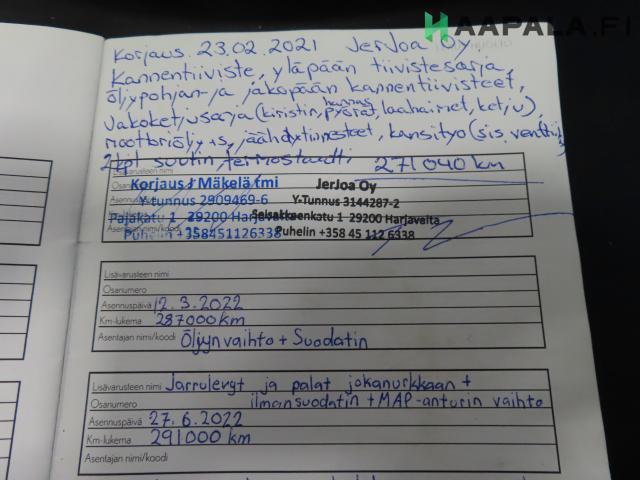 HAAPALA.FI
Korjaus 23.02.2021 JerJoa Oy.
Kannentiiviste, yläpään tiivistesarja,
öljypohjan- ja jakopään kannentiivisteet,
Jakoketjusarja (kiristin, hammas pyörät, laahaimet, ketju),
moottoriöljy+s, jäähdytinnesteet, kansityö (sis. venttii
2kpl suutin, termostaatti 271040 km
Osanumero
Korjaus J Mäkelä tmi JerJoa Oy
Asennuspäivä Y-tunnus 2909469-6 Y-Tunnus 3144287-2
Pajakatu 1 29200 Harjavalta Seisakkeenkatu 1 29200 Harjavalta
Puhelin +358451126338 Puhelin +358 45 112 6338
Lisävarusteen nimi
Osanumero
Asennuspäivä 12.3.2022
Km-lukema 287000km
Asentajan nimi/koodi Öljynvaihto + Suodatin
Lisävarusteen nimi Jarrulevyt ja palat jokanurkkaan +
Osanumero ilmansuodatin + MAP-anturin vaihto
Asennuspäivä 27.6.2022
Km-lukema 291000 km
Asentajan nimi/koodi